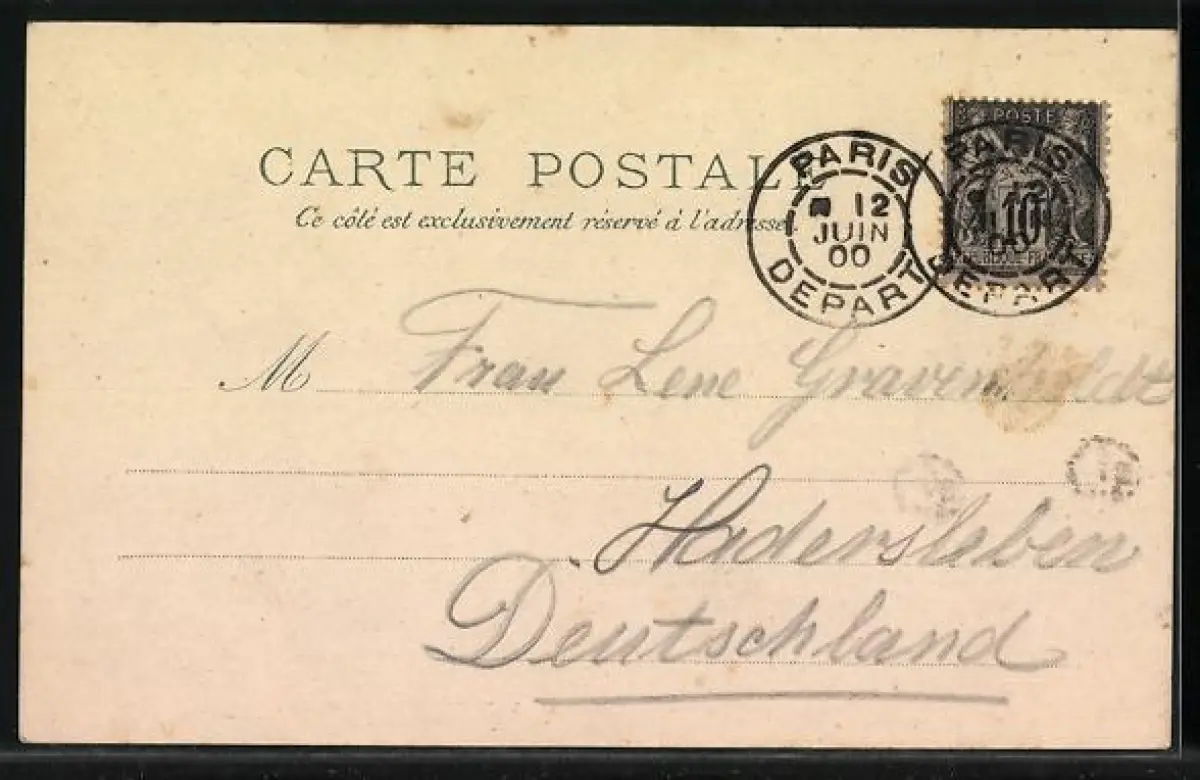 CARTE POSTALE
Ce côté est exclusivement réservé à l'adresse.
PARIS
12
JUIN
00
DEPART
POSTE
PARIS
12
10
DEPART
M Frau Lene
Hadersleben
Deutschland